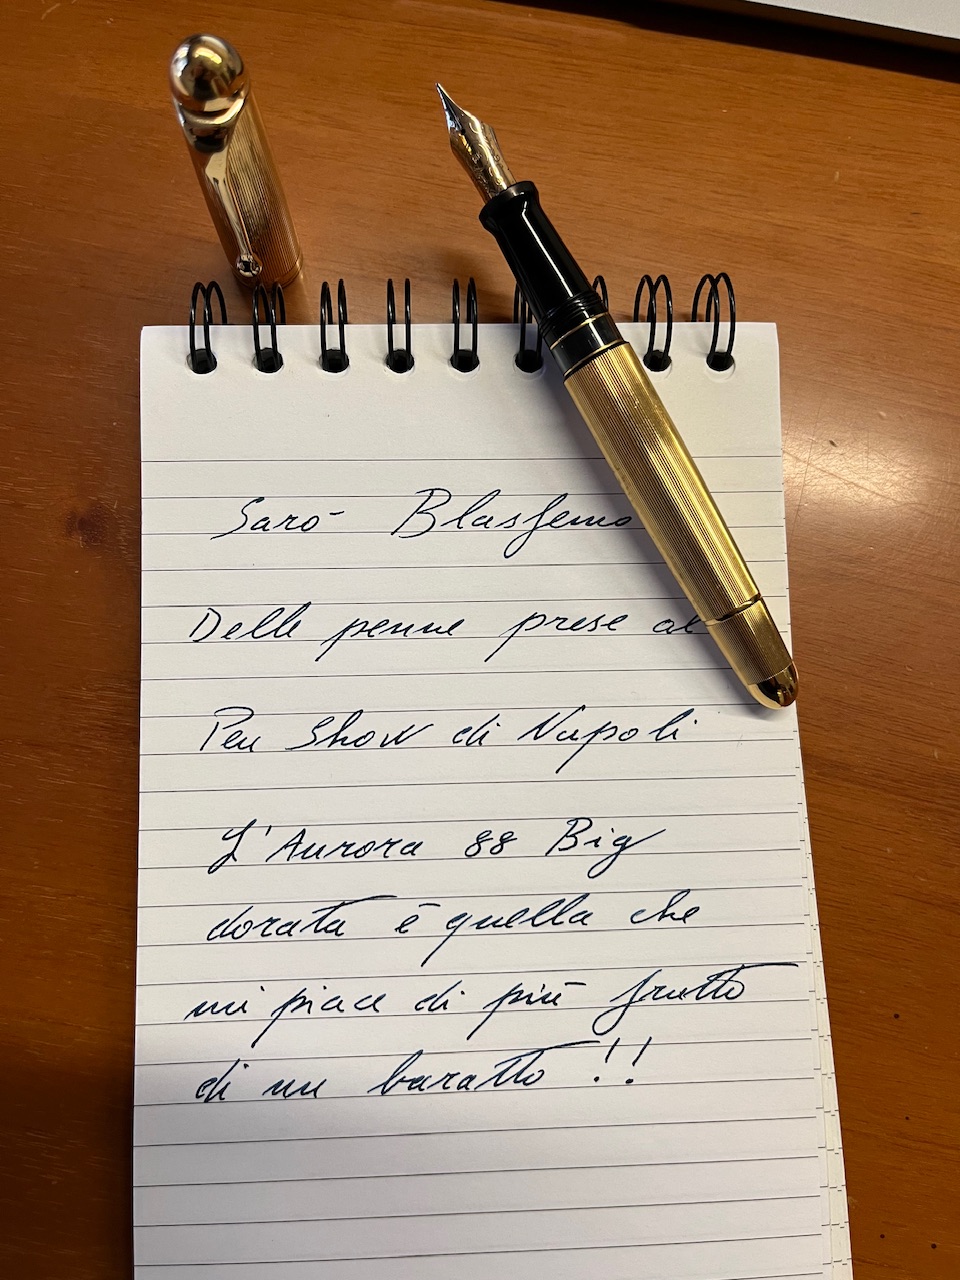 Sarò Blasfemo
Delle penne prese al
Pen Show di Napoli
L'Aurora 88 Big
dorata è quella che
mi piace di più frutto
di un baratto !!